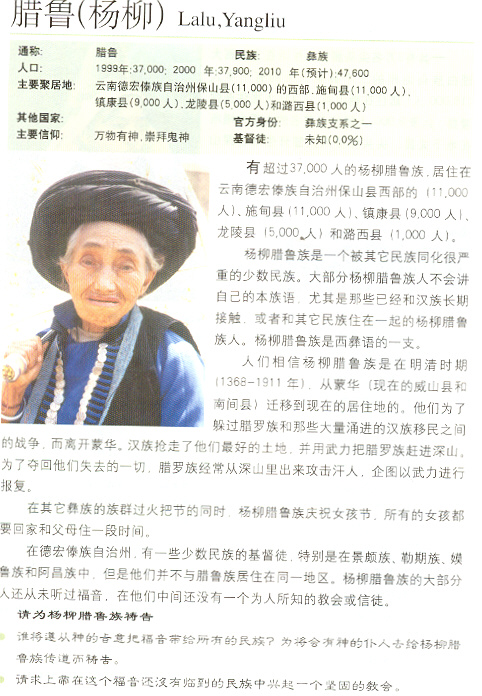 腊鲁(杨柳) Lalu,Yangliu
通称: 腊鲁 民族: 彝族
人口: 1999年:37,000; 2000 年:37,900; 2010 年(预计):47,600
主要聚居地: 云南德宏傣族自治州保山县(11,000)的西部,施甸县(11,000人),
镇康县(9,000人),龙陵县(5,000人)和潞西县(1,000人)
其他国家: 官方身份: 彝族支系之一
主要信仰: 万物有神,崇拜鬼神 基督徒: 未知(0.0%)
有超过37,000人的杨柳腊鲁族,居住在
云南德宏傣族自治州保山县西部的(11,000
人)、施甸县(11,000人)、镇康县(9,000人)、
龙陵县(5,000人)和潞西县(1,000人)。
杨柳腊鲁族是一个被其它民族同化很严
重的少数民族。大部分杨柳腊鲁族人不会讲
自己的本族语,尤其是那些已经和汉族长期
接触,或者和其它民族住在一起的杨柳腊鲁
族人。杨柳腊鲁族是西彝语的一支。
人们相信杨柳腊鲁族是在明清时期
(1368-1911年),从蒙华(现在的威山县和
南间县)迁移到现在的居住地的。他们为了
躲过腊罗族和那些大量涌进的汉族移民之间
的战争,而离开蒙华。汉族抢走了他们最好的土地,并用武力把腊罗族赶进深山。
为了夺回他们失去的一切,腊罗族经常从深山里出来攻击汗人,企图以武力进行
报复。
在其它彝族的族群过火把节的同时,杨柳腊鲁族庆祝女孩节,所有的女孩都
要回家和父母住一段时间。
在德宏傣族自治州,有一些少数民族的基督徒,特别是在景颇族、勒期族、嫫
鲁族和阿昌族中,但是他们并不与腊鲁族居住在同一地区。杨柳腊鲁族的大部分
人还从未听过福音,在他们中间还没有一个为人所知的教会或信徒。
请为杨柳腊鲁族祷告
谁将遵从神的旨意把福音带给所有的民族?为将会有神的仆人去给杨柳腊
鲁族传道而祷告。
请求上帝在这个福音还没有临到的民族中兴起一个坚固的教会。